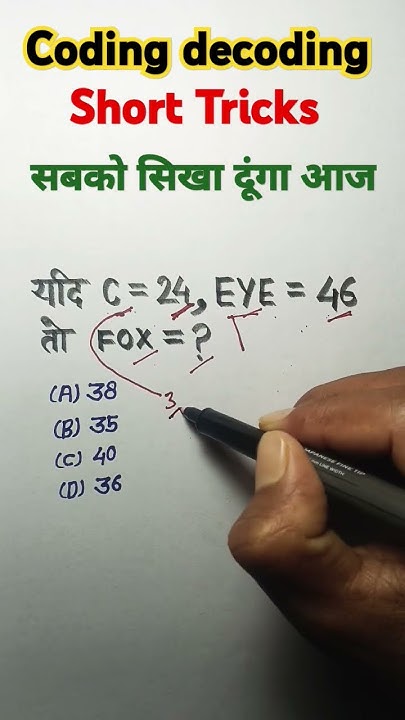 Coding decoding
Short Tricks
सबको सिखा दूंगा आज
यदि C = 24, EYE = 46
तो FOX = ?
(A) 38
(B) 35
(C) 40
(D) 36
3
JAPANESE FINE TIP